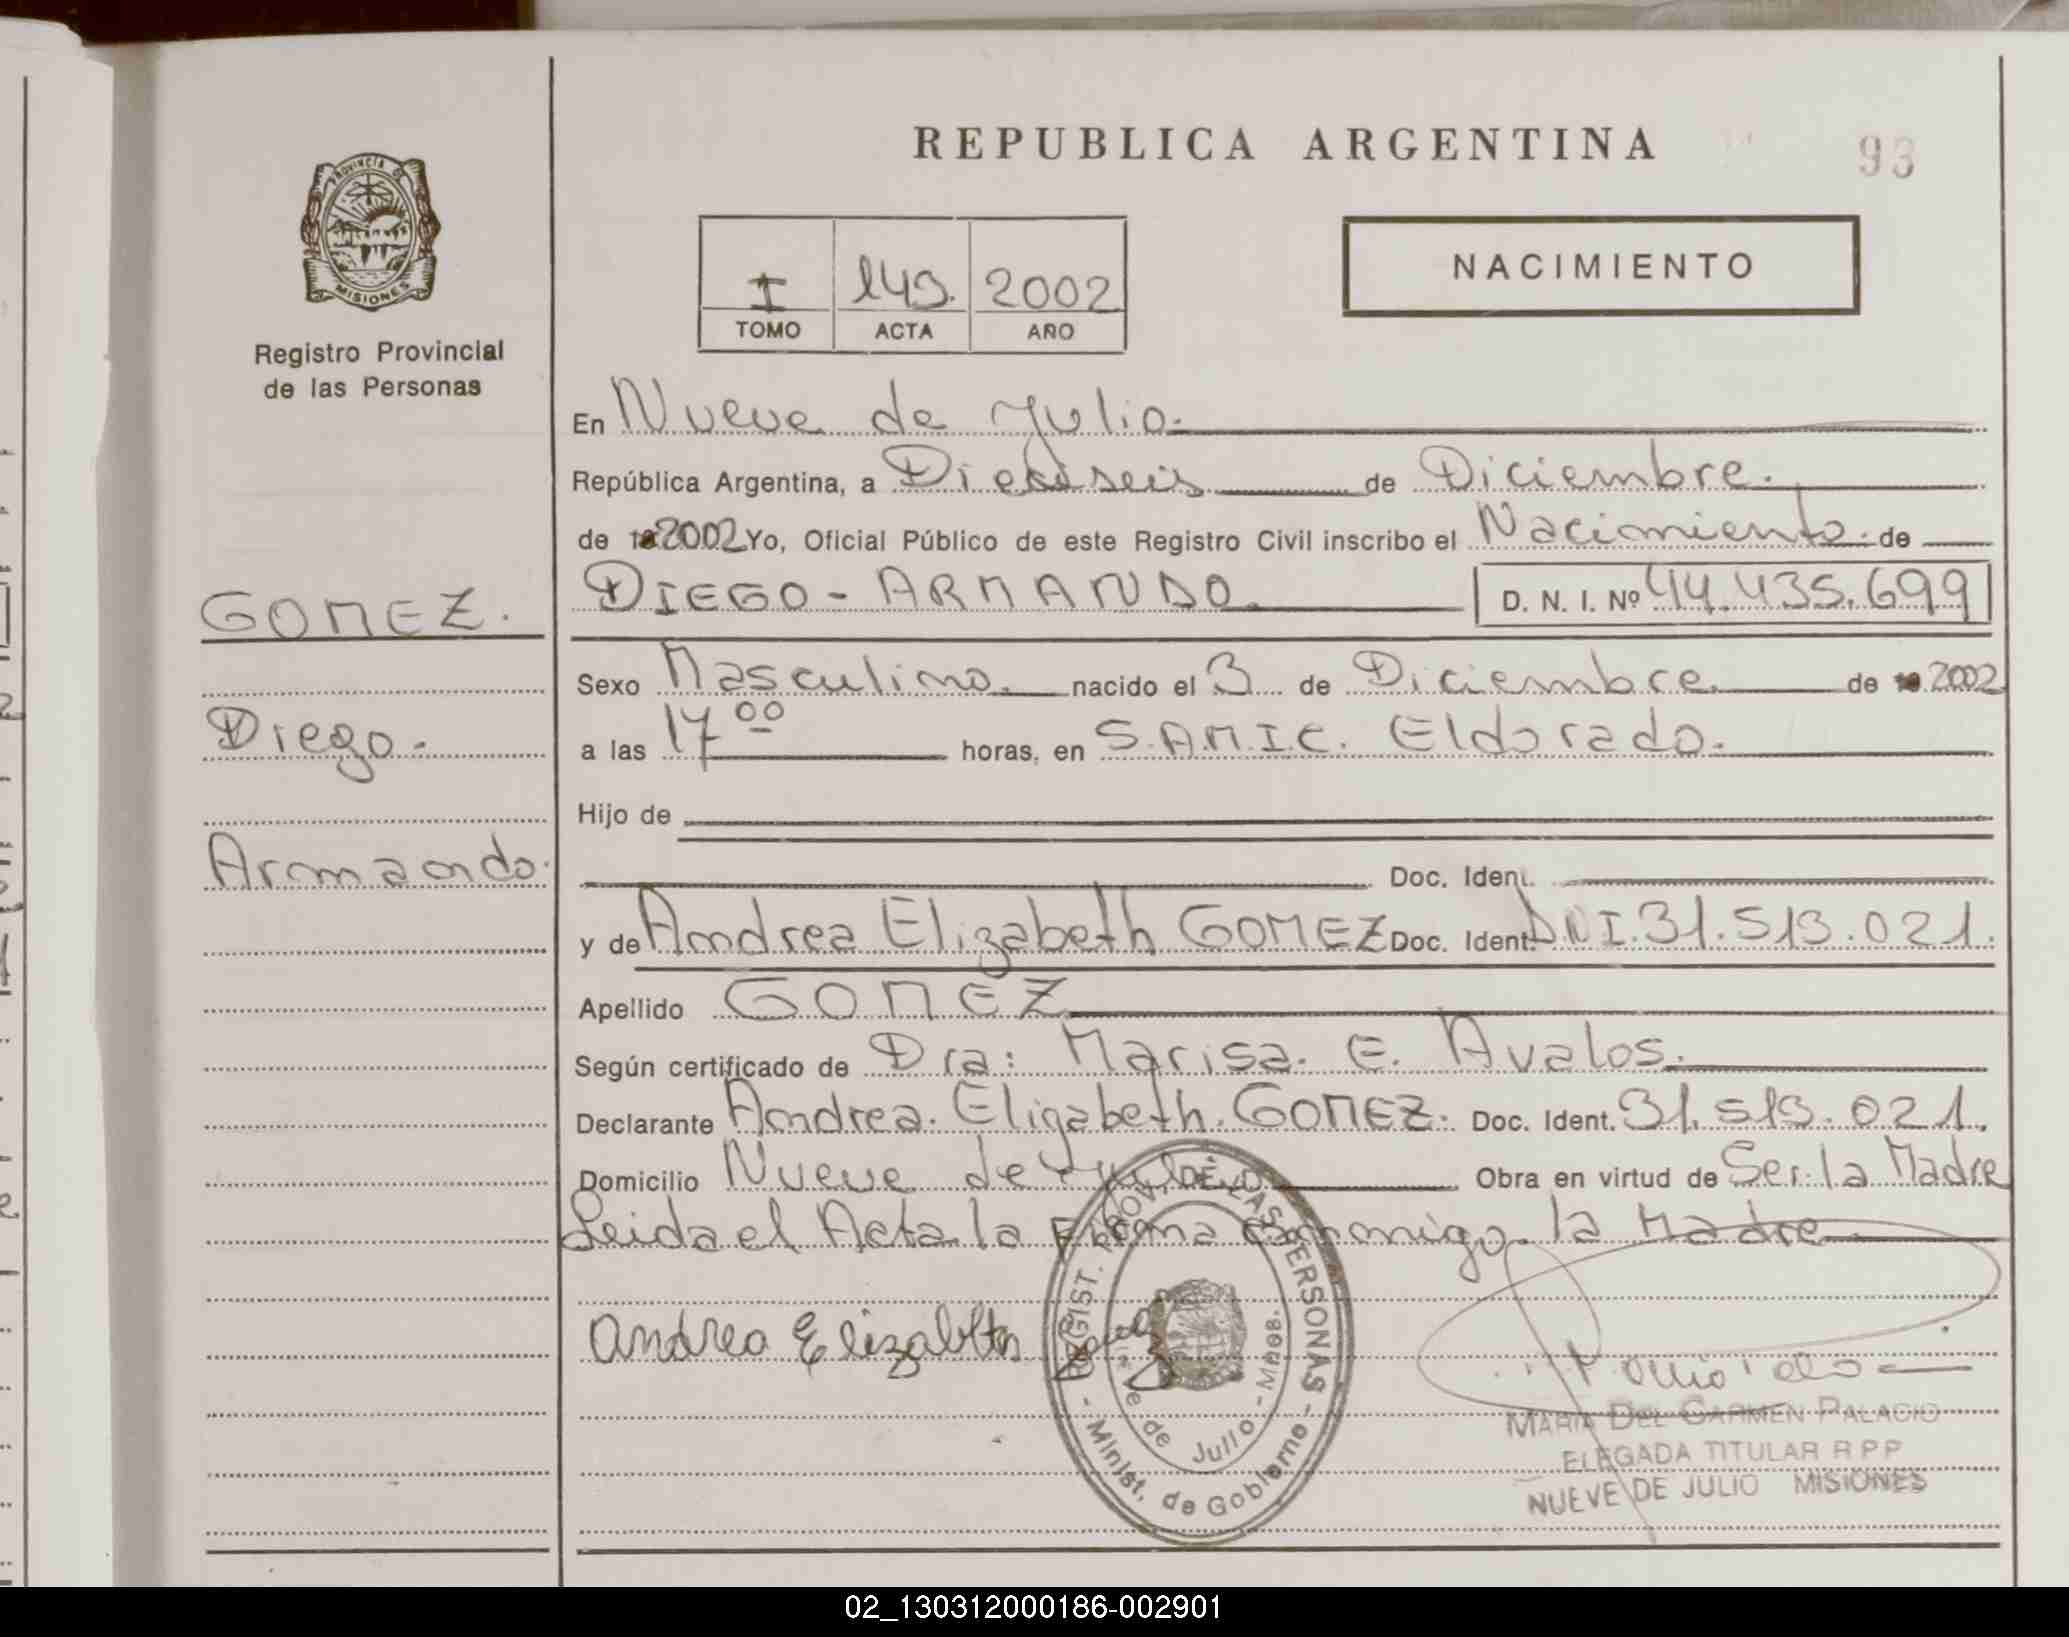 REPUBLICA ARGENTINA
93
PROVINCIA DE
MISIONES
Registro Provincial
de las Personas
I 149. 2002
TOMO ACTA AÑO
NACIMIENTO
En Nueve de Julio.
República Argentina, a Dieciseis de Diciembre.
de 2002 Yo, Oficial Público de este Registro Civil inscribo el Nacimiento de
DIEGO - ARMANDO D. N. I. Nº 44.435.699
GOMEZ.
Sexo Masculino. nacido el 3 de Diciembre de 2002
Diego.
a las 17 00 horas, en S.A.M.I.C. Eldorado.
Hijo de
Armando.
Doc. Ident.
y de Andrea Elizabeth GOMEZ Doc. Ident. DNI.31.513.021.
Apellido GOMEZ
Según certificado de Dra: Marisa. E. Avalos.
Declarante Andrea. Elizabeth. GOMEZ. Doc. Ident. 31.513.021.
Domicilio Nueve de Julio. Obra en virtud de Ser la Madre
Leida el Acta la Firma conmigo la Madre
Andrea Elizabeth
REGIST. PROV. DE LAS PERSONAS
- Minist. de Gobierno -
de Julio - Mnes.
MARIA DEL CARMEN PALACIO
ELEGADA TITULAR R P P
NUEVE DE JULIO MISIONES
02_130312000186-002901